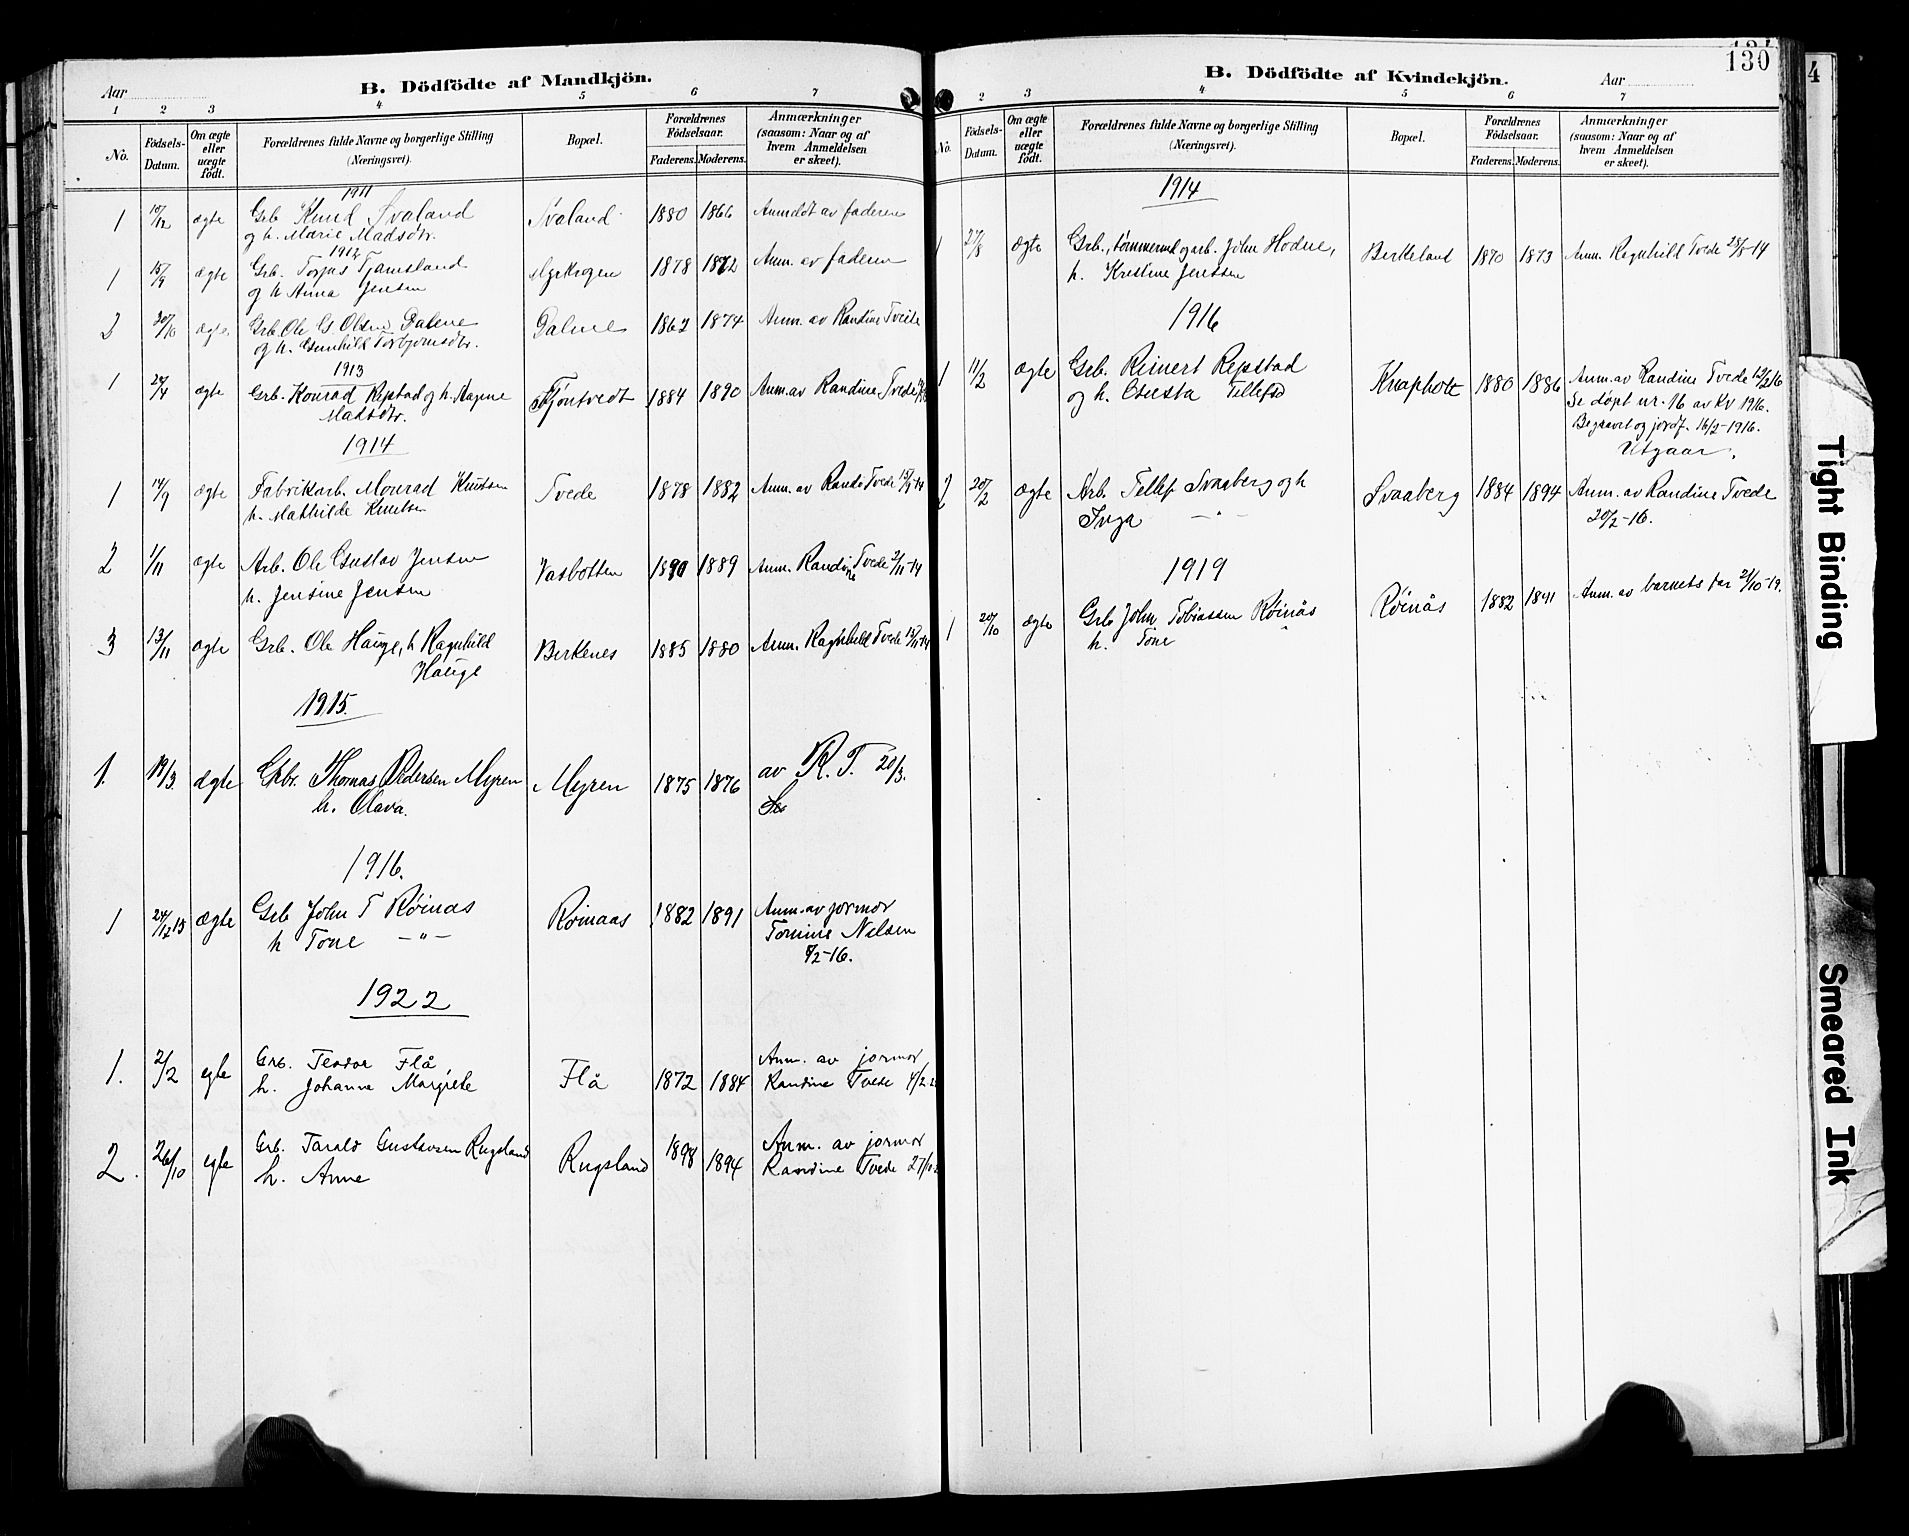 B. Dödfödte af Mandkjön.
Aar
1 2 3 4 5 6 7
No.
Födsels-
Datum.
Om ægte
eller
uægte
födt.
Forældrenes fulde Navne og borgerlige Stilling
(Næringsvei).
Bopæl.
Forældrenes
Födselsaar.
Faderens. Moderens.
Anmærkninger
(saasom: Naar og af
hvem Anmeldelsen
er skeet).
1911
1 15/12 ægte Grb Knud Svaland Svaland 1880 1866 Anmeldt av faderen
og h. Marie Madsdtr.
1912
1 15/9 ægte Grb. Torjus Tjamsland Myrkogen 1878 1872 Anm. av faderen
og h Anna Jensen
2 30/10 ægte Grb. Ole G. Olsen Dalene Dalene 1862 1874 Anm. av Randine Tveite
og h. Gunhild Torbjørnsdtr.
1913
1 24/4 ægte Grb. Konrad Repstad og h. Ragne Fjøntvedt 1884 1890 Anm. av Randine Tvede
Madsdtr.
1914
1 14/9 ægte Fabrikarb. Monrad Knutsen Tvede 1878 1882 Anm. av Randi Tvede 15/9-14
h. Mathilde Knutsen
2 1/11 ægte Arb. Ole Gustav Jensen Vasbotten 1890 1889 Anm. Randine Tvede 2/11-14
h. Jensine Jensen
3 13/11 ægte Grb. Ole Hauge, h Ragnhild Birkenes 1885 1880 Anm. Ragnhild Tvede 15/11-14
Hauge
1915.
1. 19/3. ægte Gbr. Thomas Pedersen Myren Myren 1875 1876 av R. T. 20/3.
h. Olava.
1916.
1 24/12 15 ægte Grb John T Røinas Røinaas 1882 1891 Anm. av jormor
h Tone —"— Tomine Nilsen
8/2-16.
1922
1. 2/2 egte Grb. Teodor Flå Flå 1872 1884 Anm. av jormor
h. Johanne Margrete Randine Tvede 4/2 2
2. 26/10 egte Grb. Tarald Gustavsen Rugsland Rugsland 1898 1894 Anm. av jormor
h. Anne Randine Tvede 27/10
B. Dödfödte af Kvindekjön.
Aar
130
2 3 4 5 6 7
No.
Födsels-
Datum.
Om ægte
eller
uægte
födt.
Forældrenes fulde Navne og borgerlige Stilling
(Næringsvei).
Bopæl.
Forældrenes
Födselsaar.
Faderens. Moderens.
Anmærkninger
(saasom: Naar og af
hvem Anmeldelsen
er skeet).
1914
1 27/8 ægte Grb., tømmermd og arb. John Hodne, Berkeland 1870 1873 Anm. Ragnhild Tvede 28/8-14
h. Kristine Jenssen
1916
1 11/2 ægte Grb. Reinert Repstad Knapholt 1880 1886 Anm. av Randine Tvede 12/2 16
og h. Gusta Tellefsd Se døpt nr. 16 av Kv 1916.
Begravet og jordf. 16/2-1916.
Utgaar.
2 20/2 ægte Arb. Tellef Svaaberg og h Svaaberg 1884 1894 Anm. av Randine Tvede
Inga —"— 20/2-16.
1919
1 20/10 ægte Grb John Tobiassen Røinås Røinås 1882 1841 Anm. av barnets far 21/10-19.
h. Tone "
4
Tight Binding
Smeared Ink